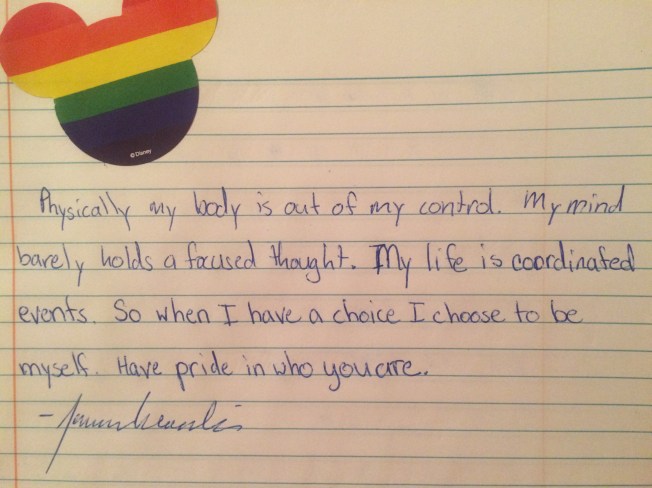 © Disney
Physically my body is out of my control. My mind
barely holds a focused thought. My life is coordinated
events. So when I have a choice I choose to be
myself. Have pride in who you are.